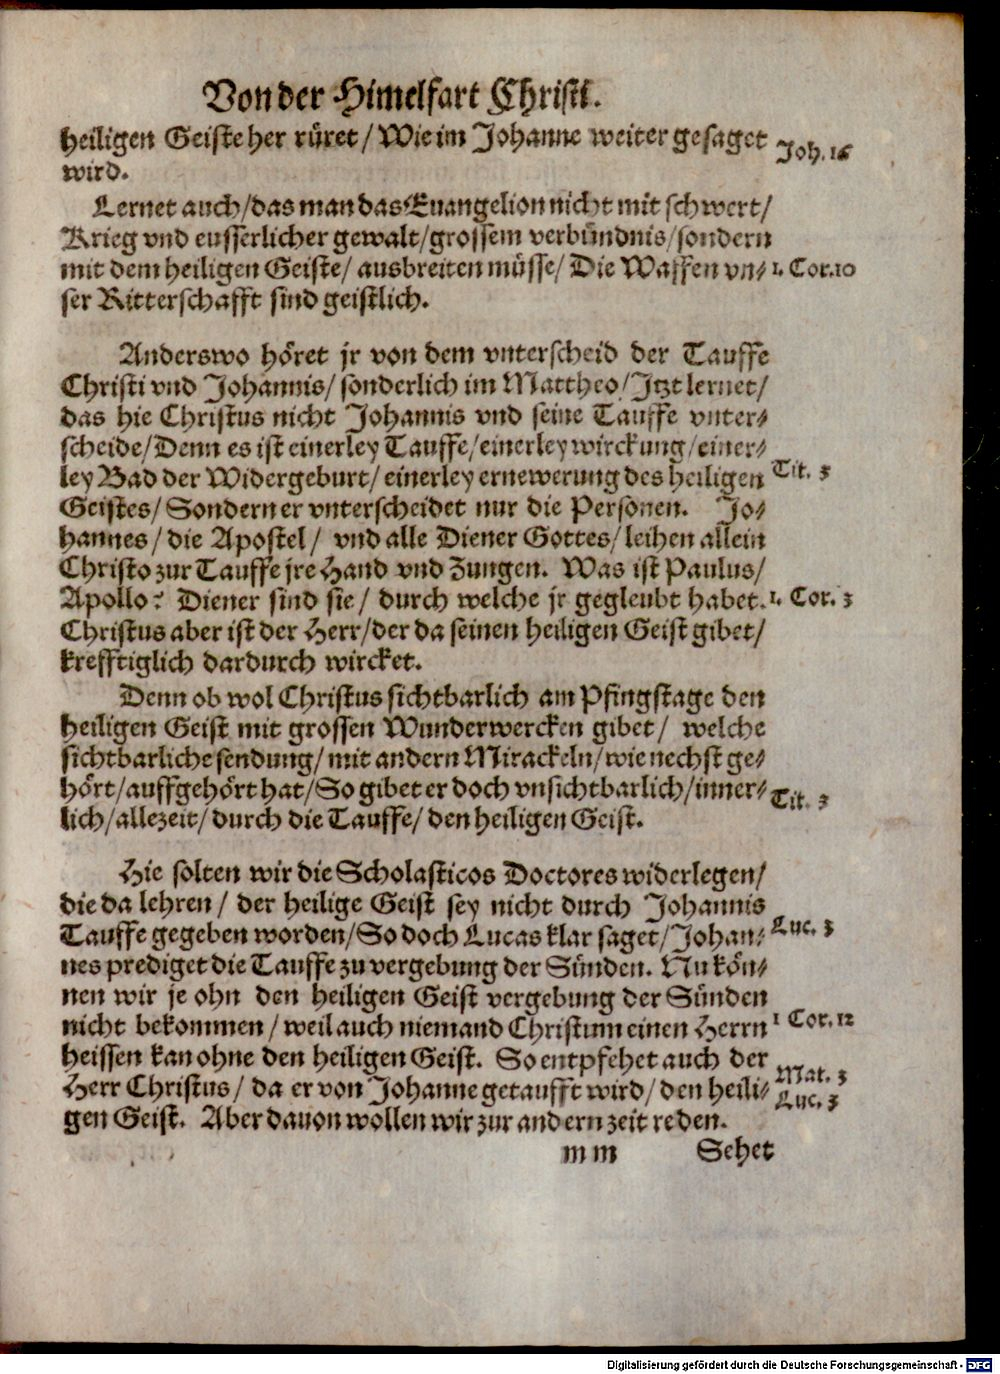 Von der Himelfart Christi.
heiligen Geiste her rüret / Wie im Johanne weiter gesaget Joh. 16
wird.
Lernet auch / das man das Euangelion nicht mit schwert /
Krieg vnd eusserlicher gewalt / grossem verbündnis / sondern
mit dem heiligen Geiste / ausbreiten müsse / Die Waffen vn- 1. Cor. 10
ser Ritterschafft sind geistlich.
Anderswo höret jr von dem vnterscheid der Tauffe
Christi vnd Johannis / sonderlich im Mattheo / Jtzt lernet /
das hie Christus nicht Johannis vnd seine Tauffe vnter-
scheide / Denn es ist einerley Tauffe / einerley wirckung / einer-
ley Bad der Widergeburt / einerley ernewerung des heiligen Tit. 3
Geistes / Sondern er vnterscheidet nur die Personen. Jo-
hannes / die Apostel / vnd alle Diener Gottes / leihen allein
Christo zur Tauffe jre Hand vnd Zungen. Was ist Paulus /
Apollo? Diener sind sie / durch welche jr gegleubt habet. 1. Cor. 3
Christus aber ist der Herr / der da seinen heiligen Geist gibet /
krefftiglich dardurch wircket.
Denn ob wol Christus sichtbarlich am Pfingstage den
heiligen Geist mit grossen Wunderwercken gibet / welche
sichtbarliche sendung / mit andern Mirackeln / wie nechst ge-
hört / auffgehört hat / So gibet er doch vnsichtbarlich / inner- Tit. 3
lich / allezeit / durch die Tauffe / den heiligen Geist.
Hie solten wir die Scholasticos Doctores widerlegen /
die da lehren / der heilige Geist sey nicht durch Johannis
Tauffe gegeben worden / So doch Lucas klar saget / Johan- Luc. 3
nes prediget die Tauffe zu vergebung der Sünden. Nu kön-
nen wir je ohn den heiligen Geist vergebung der Sünden
nicht bekommen / weil auch niemand Christum einen Herrn 1 Cor. 12
heissen kan ohne den heiligen Geist. So entpfehet auch der
Herr Christus / da er von Johanne getaufft wird / den heili- Mat. 3
gen Geist. Aber dauon wollen wir zur andern zeit reden. Luc. 3
m m Sehet
Digitalisierung gefördert durch die Deutsche Forschungsgemeinschaft - DFG